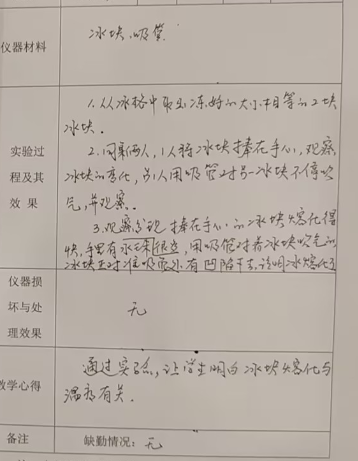 仪器材料
冰块、吸管
1.从冰格中取出冻好的大小相等的2块
冰块.
实验过
程及其
效 果
2.同来两人,1人将冰块捧在手心,观察
冰块的变化,另1人用吸管对另一冰块不停吹
气,并观察.
3.观察发现 捧在手心的冰块熔化得
快,手里有水,用吸管对着冰块吹气的
冰块正对准吸管处有凹陷下去,说明冰熔化
仪器损
坏与处
理效果
无
教学心得
通过实验,让学生明白冰块熔化与
温度有关.
备注
缺勤情况:无